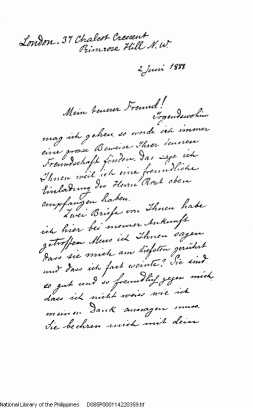 London. 37 Chalcot Crescent
Primrose Hill N.W
2 Juni 1888
Mein teurer Freund!
Irgendswohin
mag ich gehen so werde ich immer
eine grosse Beweise Ihrer teueren
Freundschaft finden, das sage ich
Ihnen weil ich eine freundliche
Einladung des Herrn Rost oben
empfangen habe.
Zwei Briefe von Ihnen habe
ich hier bei meiner Ankunft
getroffen Muss ich Ihnen sagen
dass sie mich am tiefsten gerührt
und dass ich fast weinte? Sie sind
so gut und so freundlich gegen mich
dass ich nicht weiss wie ich
meinen Dank aussagen muss
Sie beehren mich mit dem
National Library of the Philippines